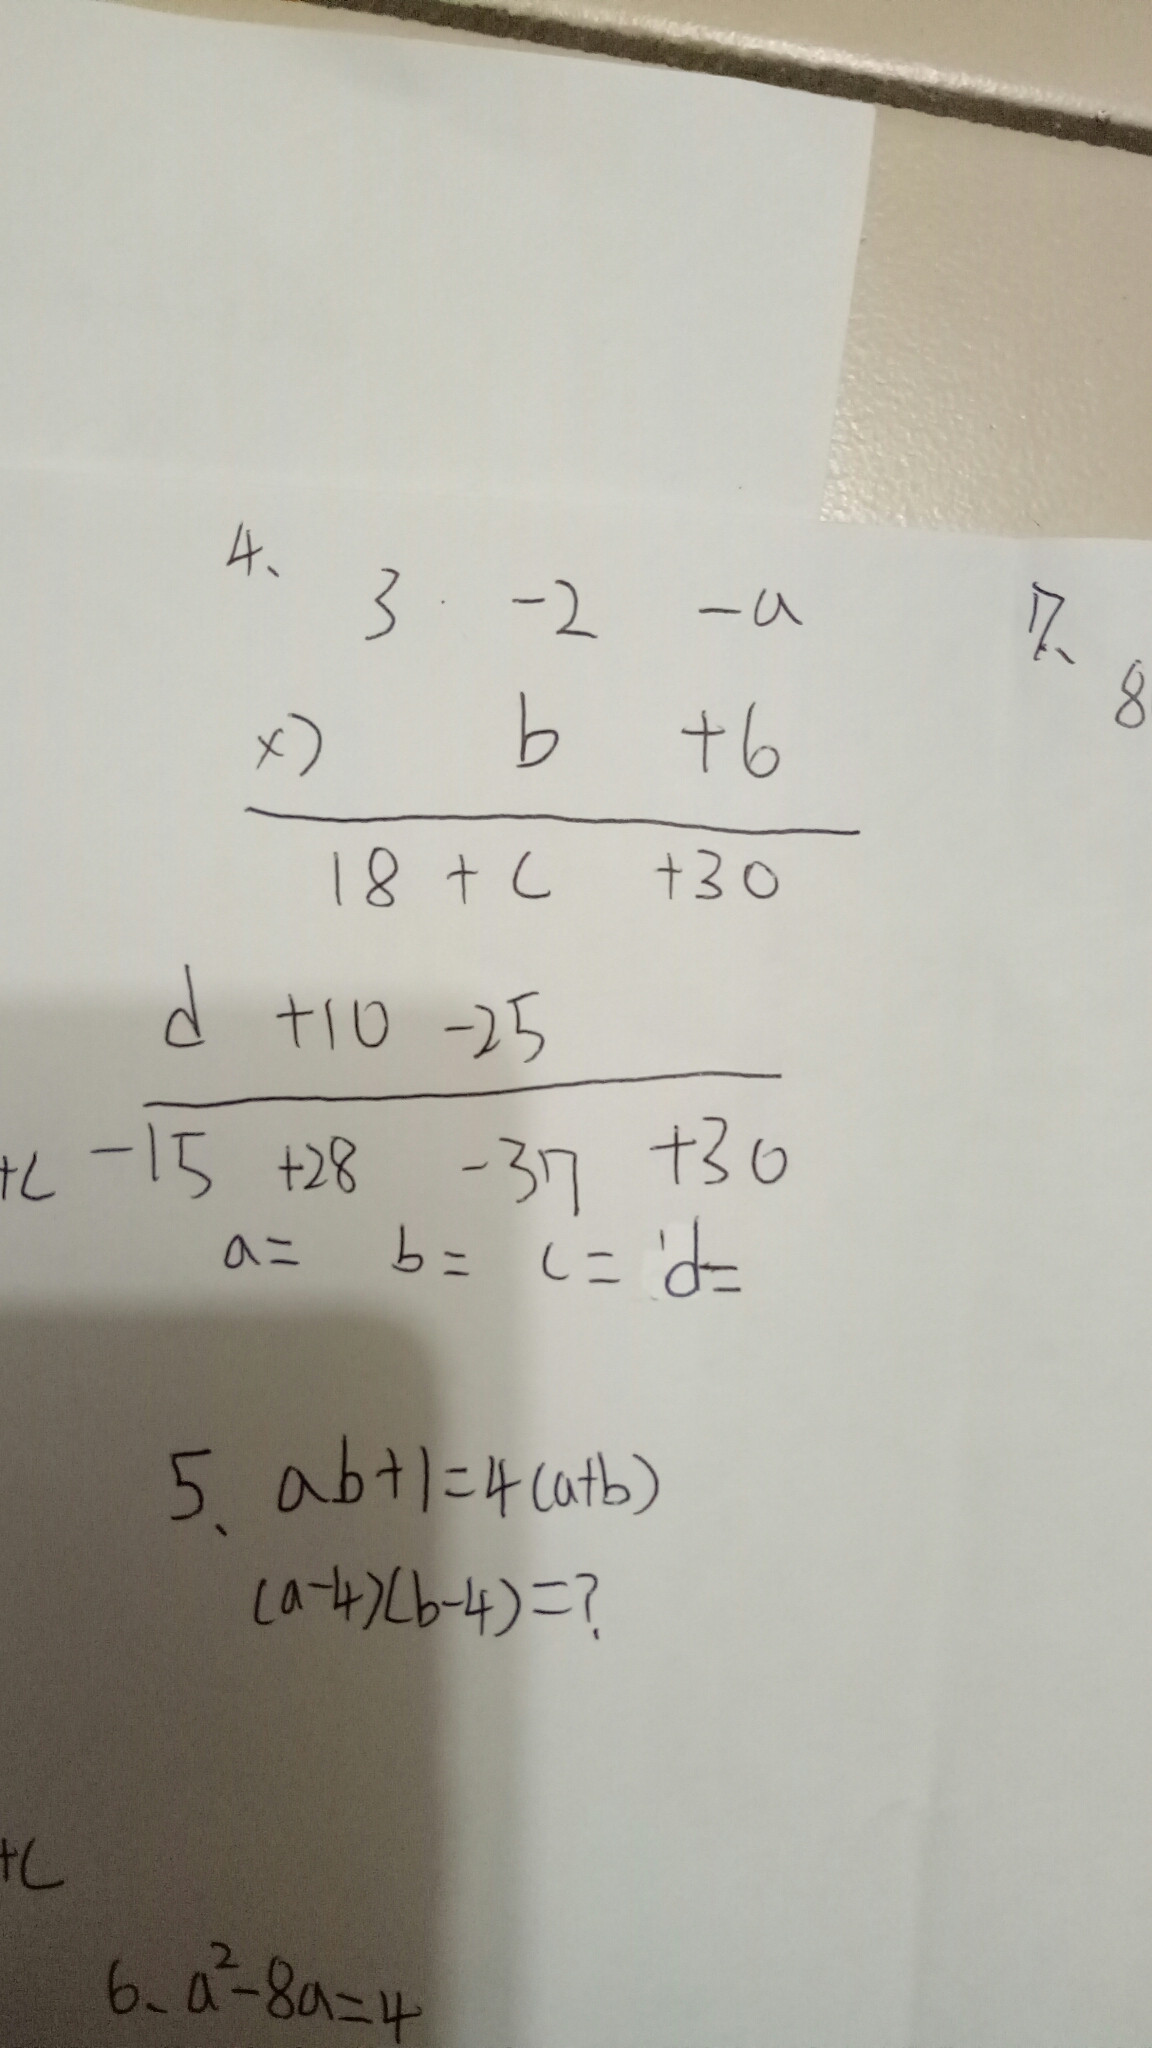 4、 3 -2 -a
x) b +6
18 + c +30
d +10 -25
-15 +28 -37 +30
a= b= c= d=
5、 ab+1=4(a+b)
(a-4)(b-4)=?
6、a²-8a=4
7、
8
+c
+c